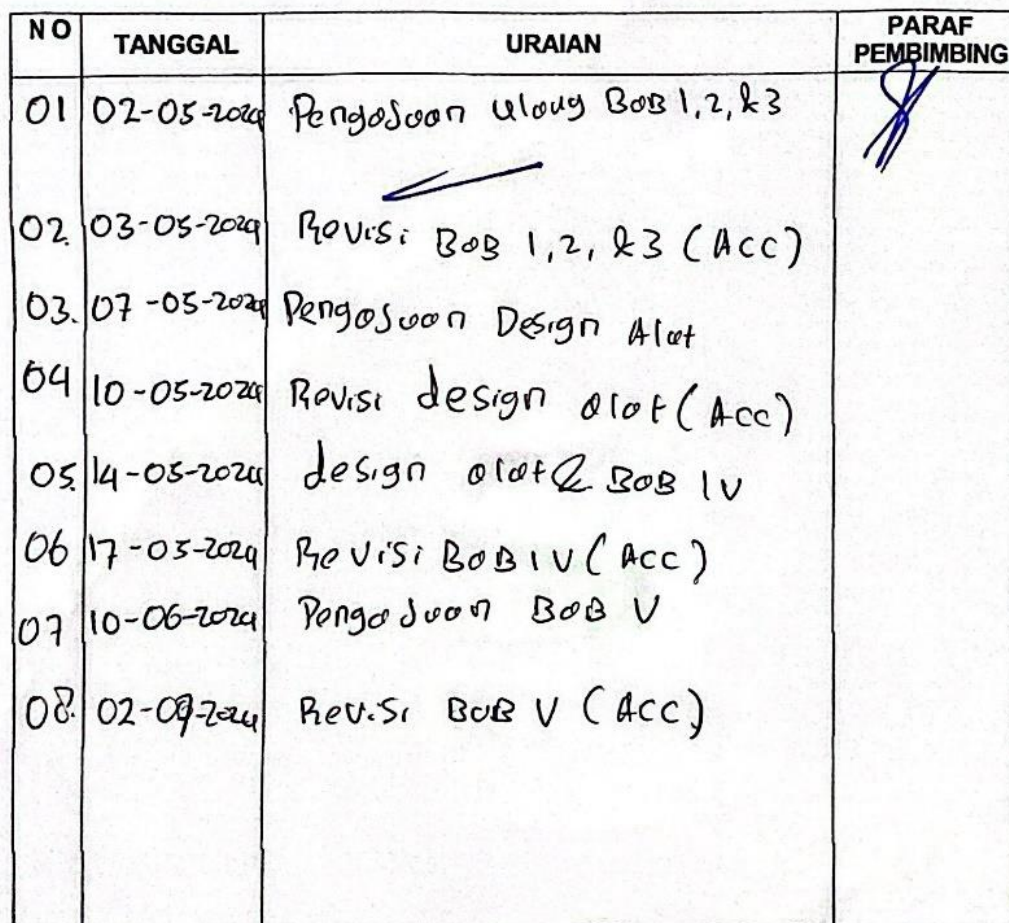 NO TANGGAL URAIAN PARAF PEMBIMBING
01 02-05-2024 Pengajuan ulang BAB 1, 2, & 3
02. 03-05-2024 Revisi BAB 1, 2, & 3 (Acc)
03. 07-05-2024 Pengajuan Design Alat
04 10-05-2024 Revisi design alat (Acc)
05. 14-05-2024 design alat & BAB IV
06 17-05-2024 Revisi BAB IV (Acc)
07 10-06-2024 Pengajuan BAB V
08. 02-09-2024 Revisi BAB V (ACC)